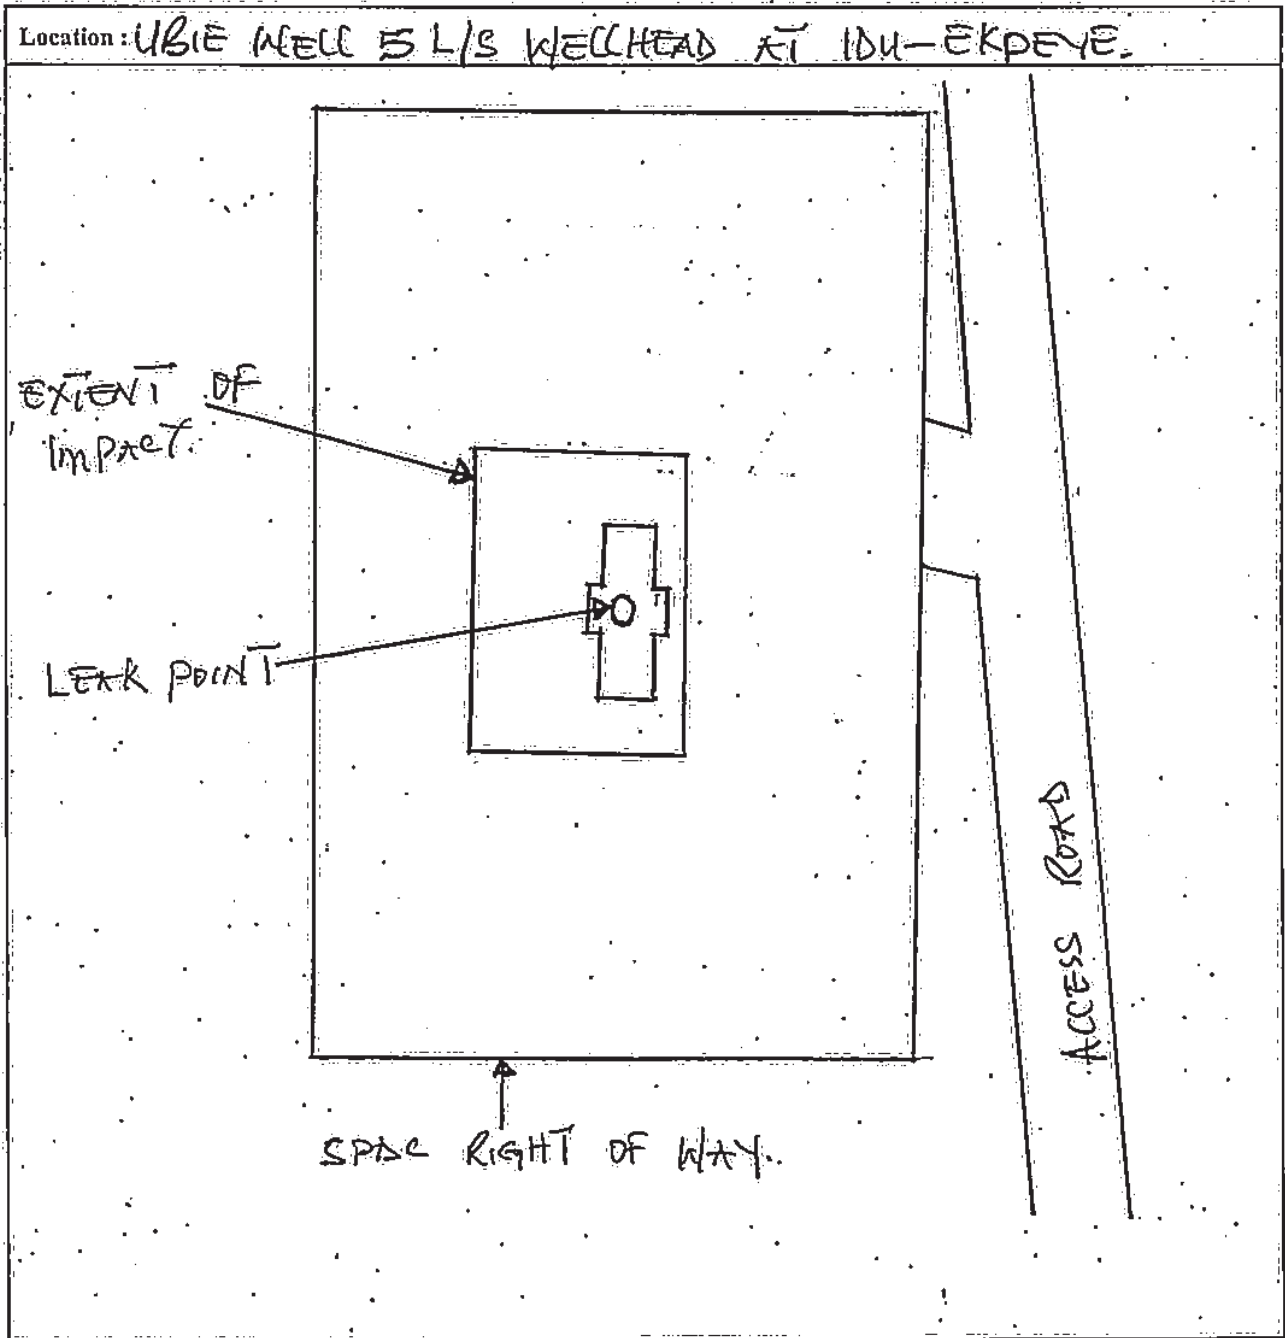 Location : UBIE WELL 5 L/S WELLHEAD AT IDU-EKPEYE.
EXTENT OF
IMPACT.
LEAK POINT
ACCESS ROAD
SPDC RIGHT OF WAY.